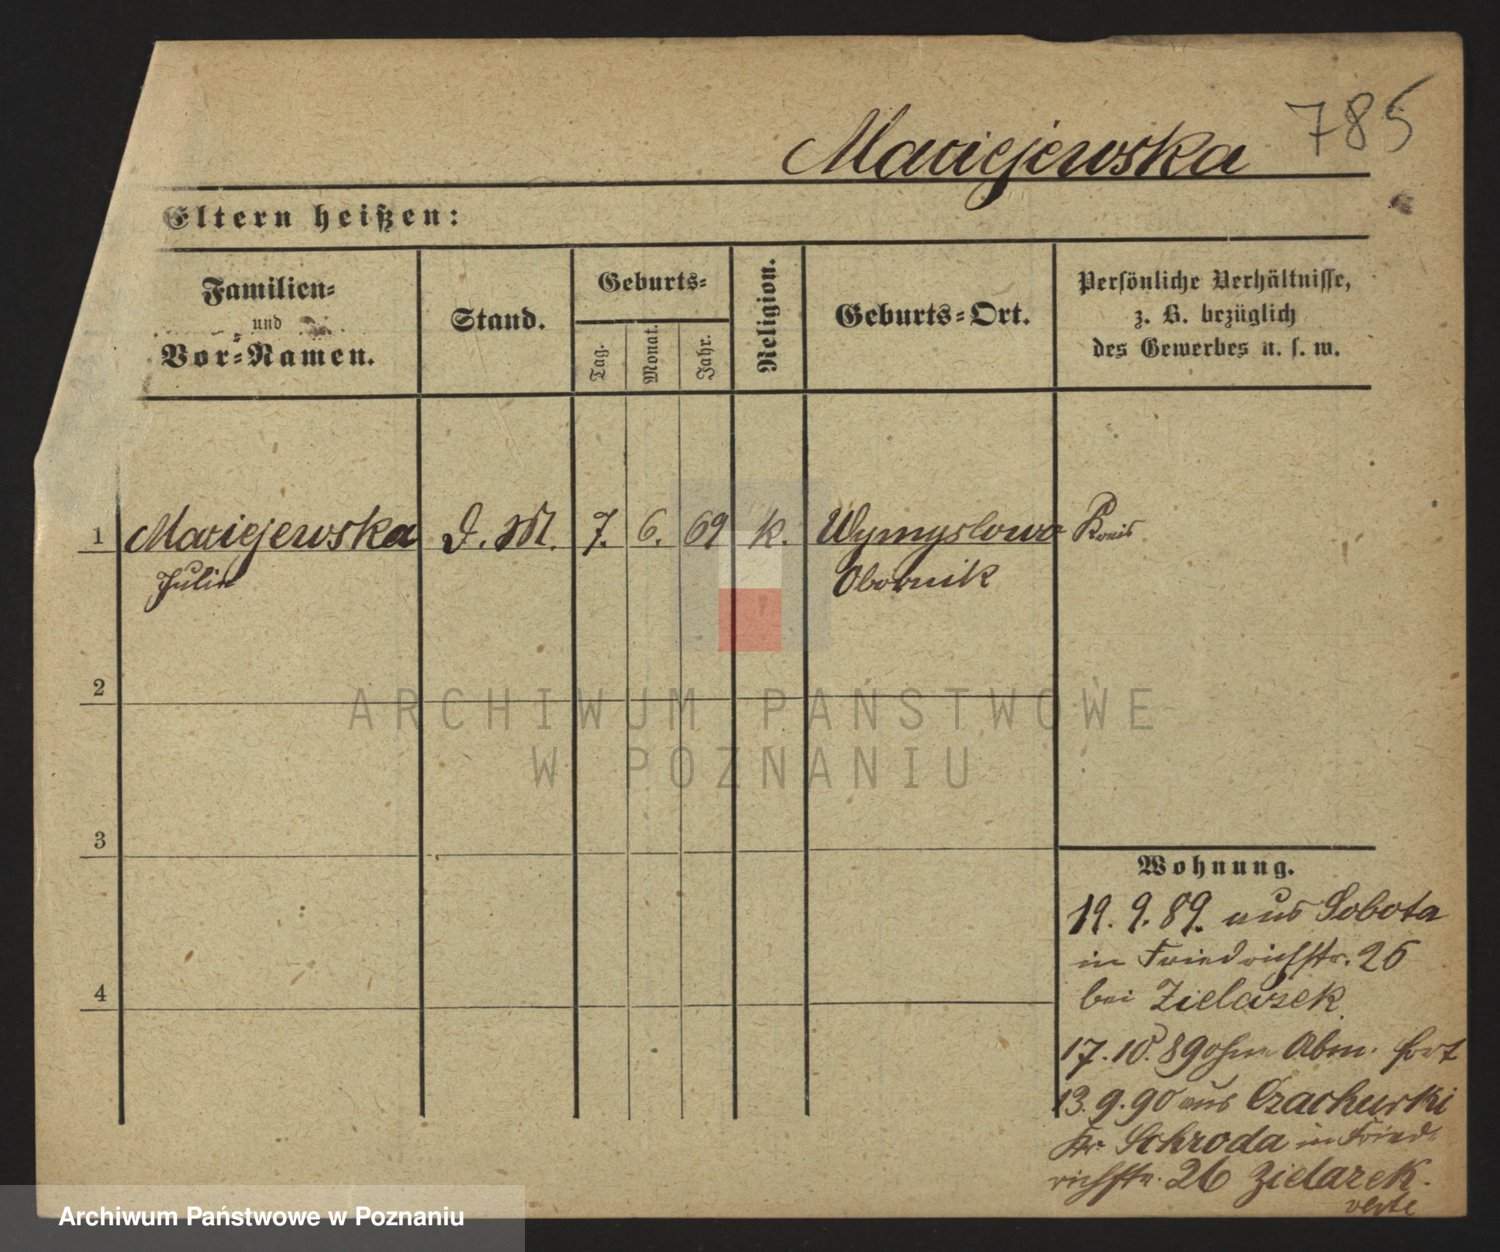 785
Maciejewska
Eltern heißen:
Familien-
und
Vor-Namen.
Stand.
Geburts-
Tag.
Monat.
Jahr.
Religion.
Geburts-Ort.
Persönliche Verhältnisse,
z. B. bezüglich
des Gewerbes u. s. w.
1 Maciejewska D. M. 7. 6. 69 k. Wymyslowo Kreis
Julie Obornik
2
3
4
Wohnung.
19. 9. 89. aus Sobota
in Friedrichstr. 26
bei Zielazek
17. 10. 89 ohne Abm. fort
13. 9. 90 aus Czachurki
Kr. Schroda in Fried-
richstr. 26 Zielazek.
verte
ARCHIWUM PAŃSTWOWE
W POZNANIU
Archiwum Państwowe w Poznaniu